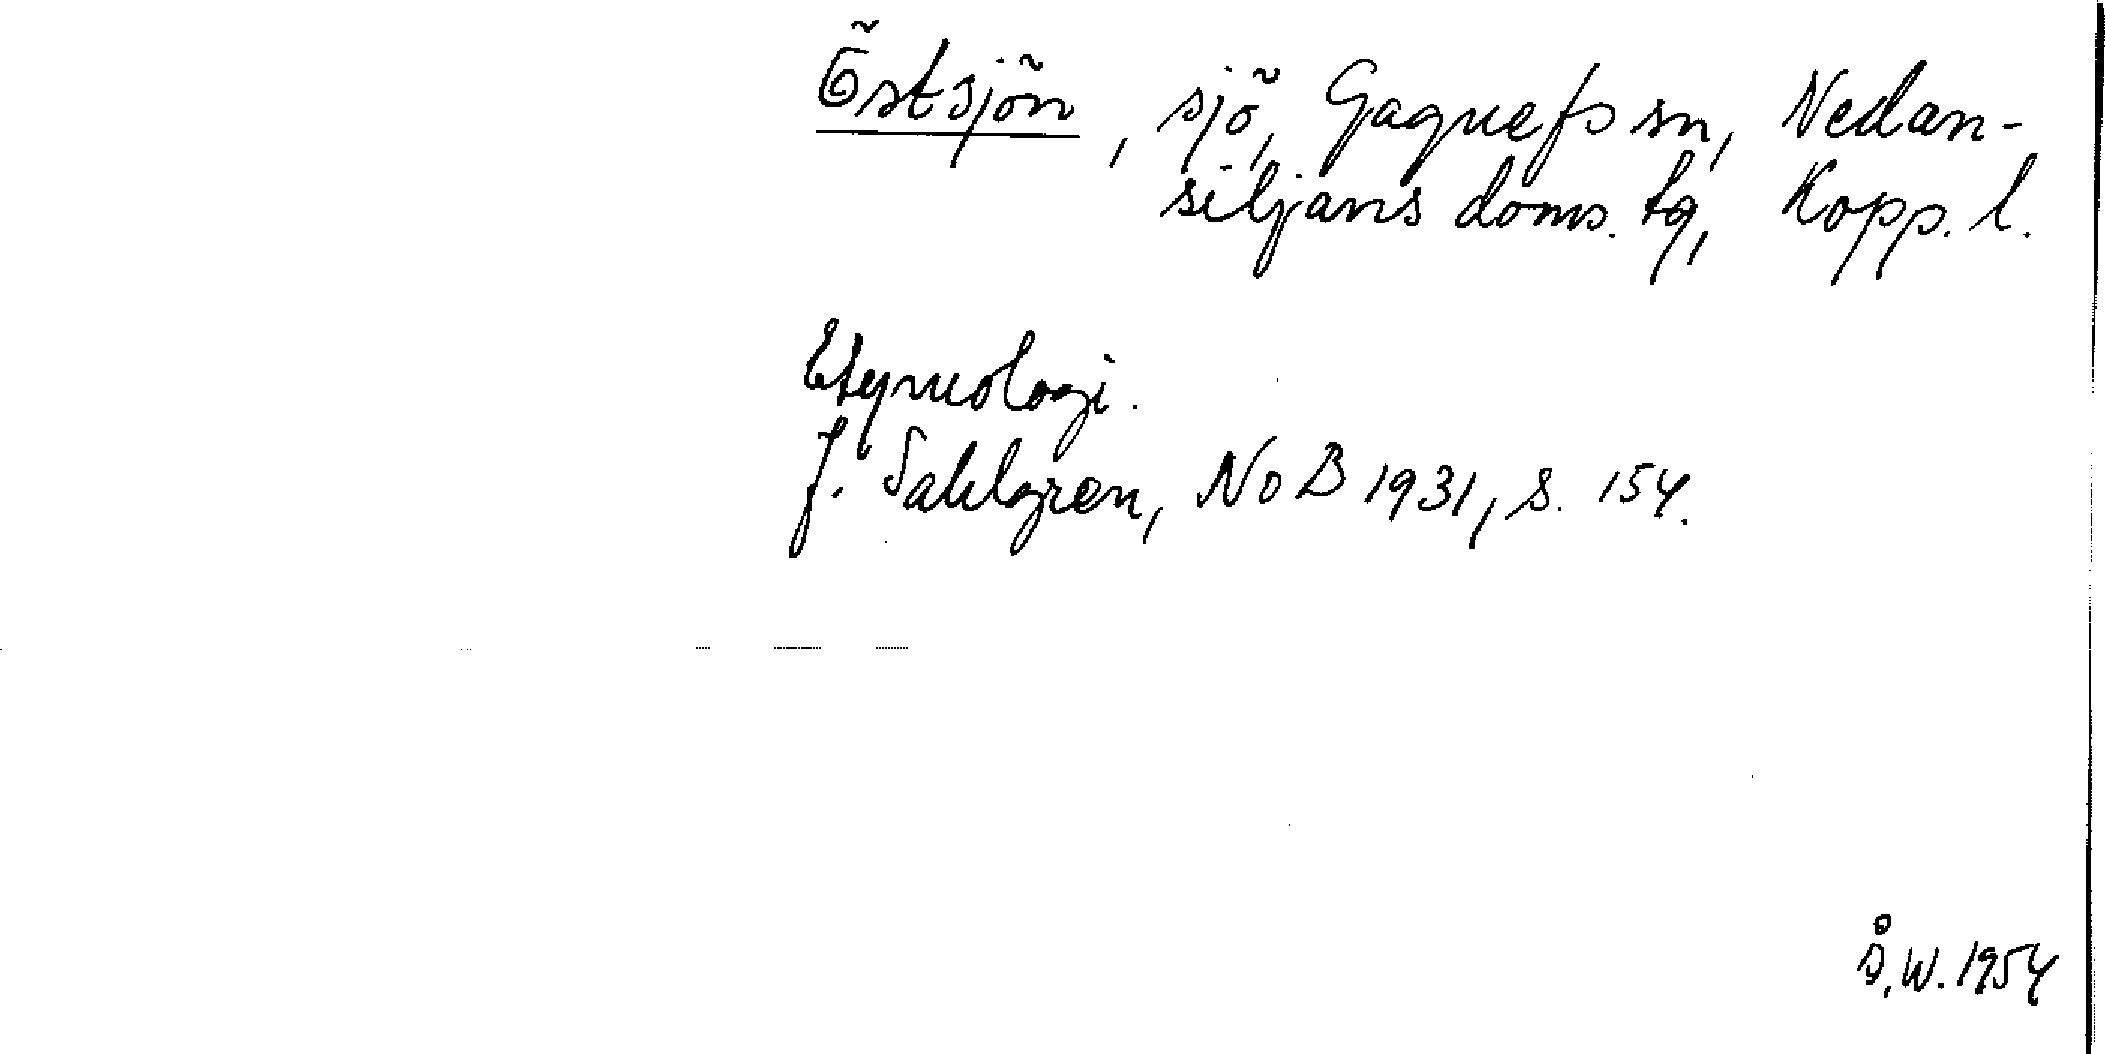 Östsjön, sjö, Gagnefs sn, Nedan-
siljans doms. tg, Kopp. l.
Etymologi.
J. Sahlgren, NoB 1931, s. 154.
Å.W. 1954